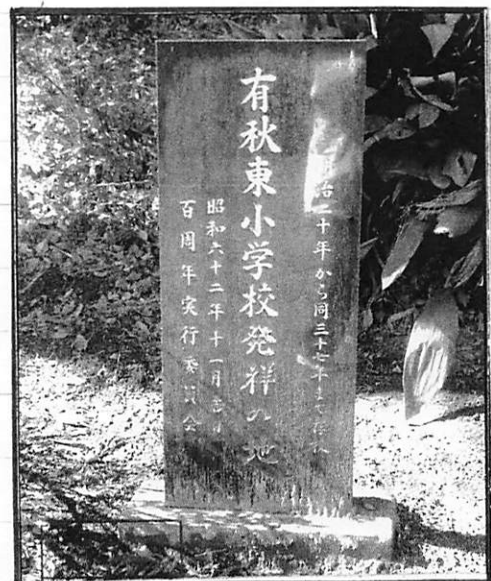 明治二十年から同三十七年まで
有秋東小学校発祥の地
昭和六十二年十一月吉日
百周年実行委員会